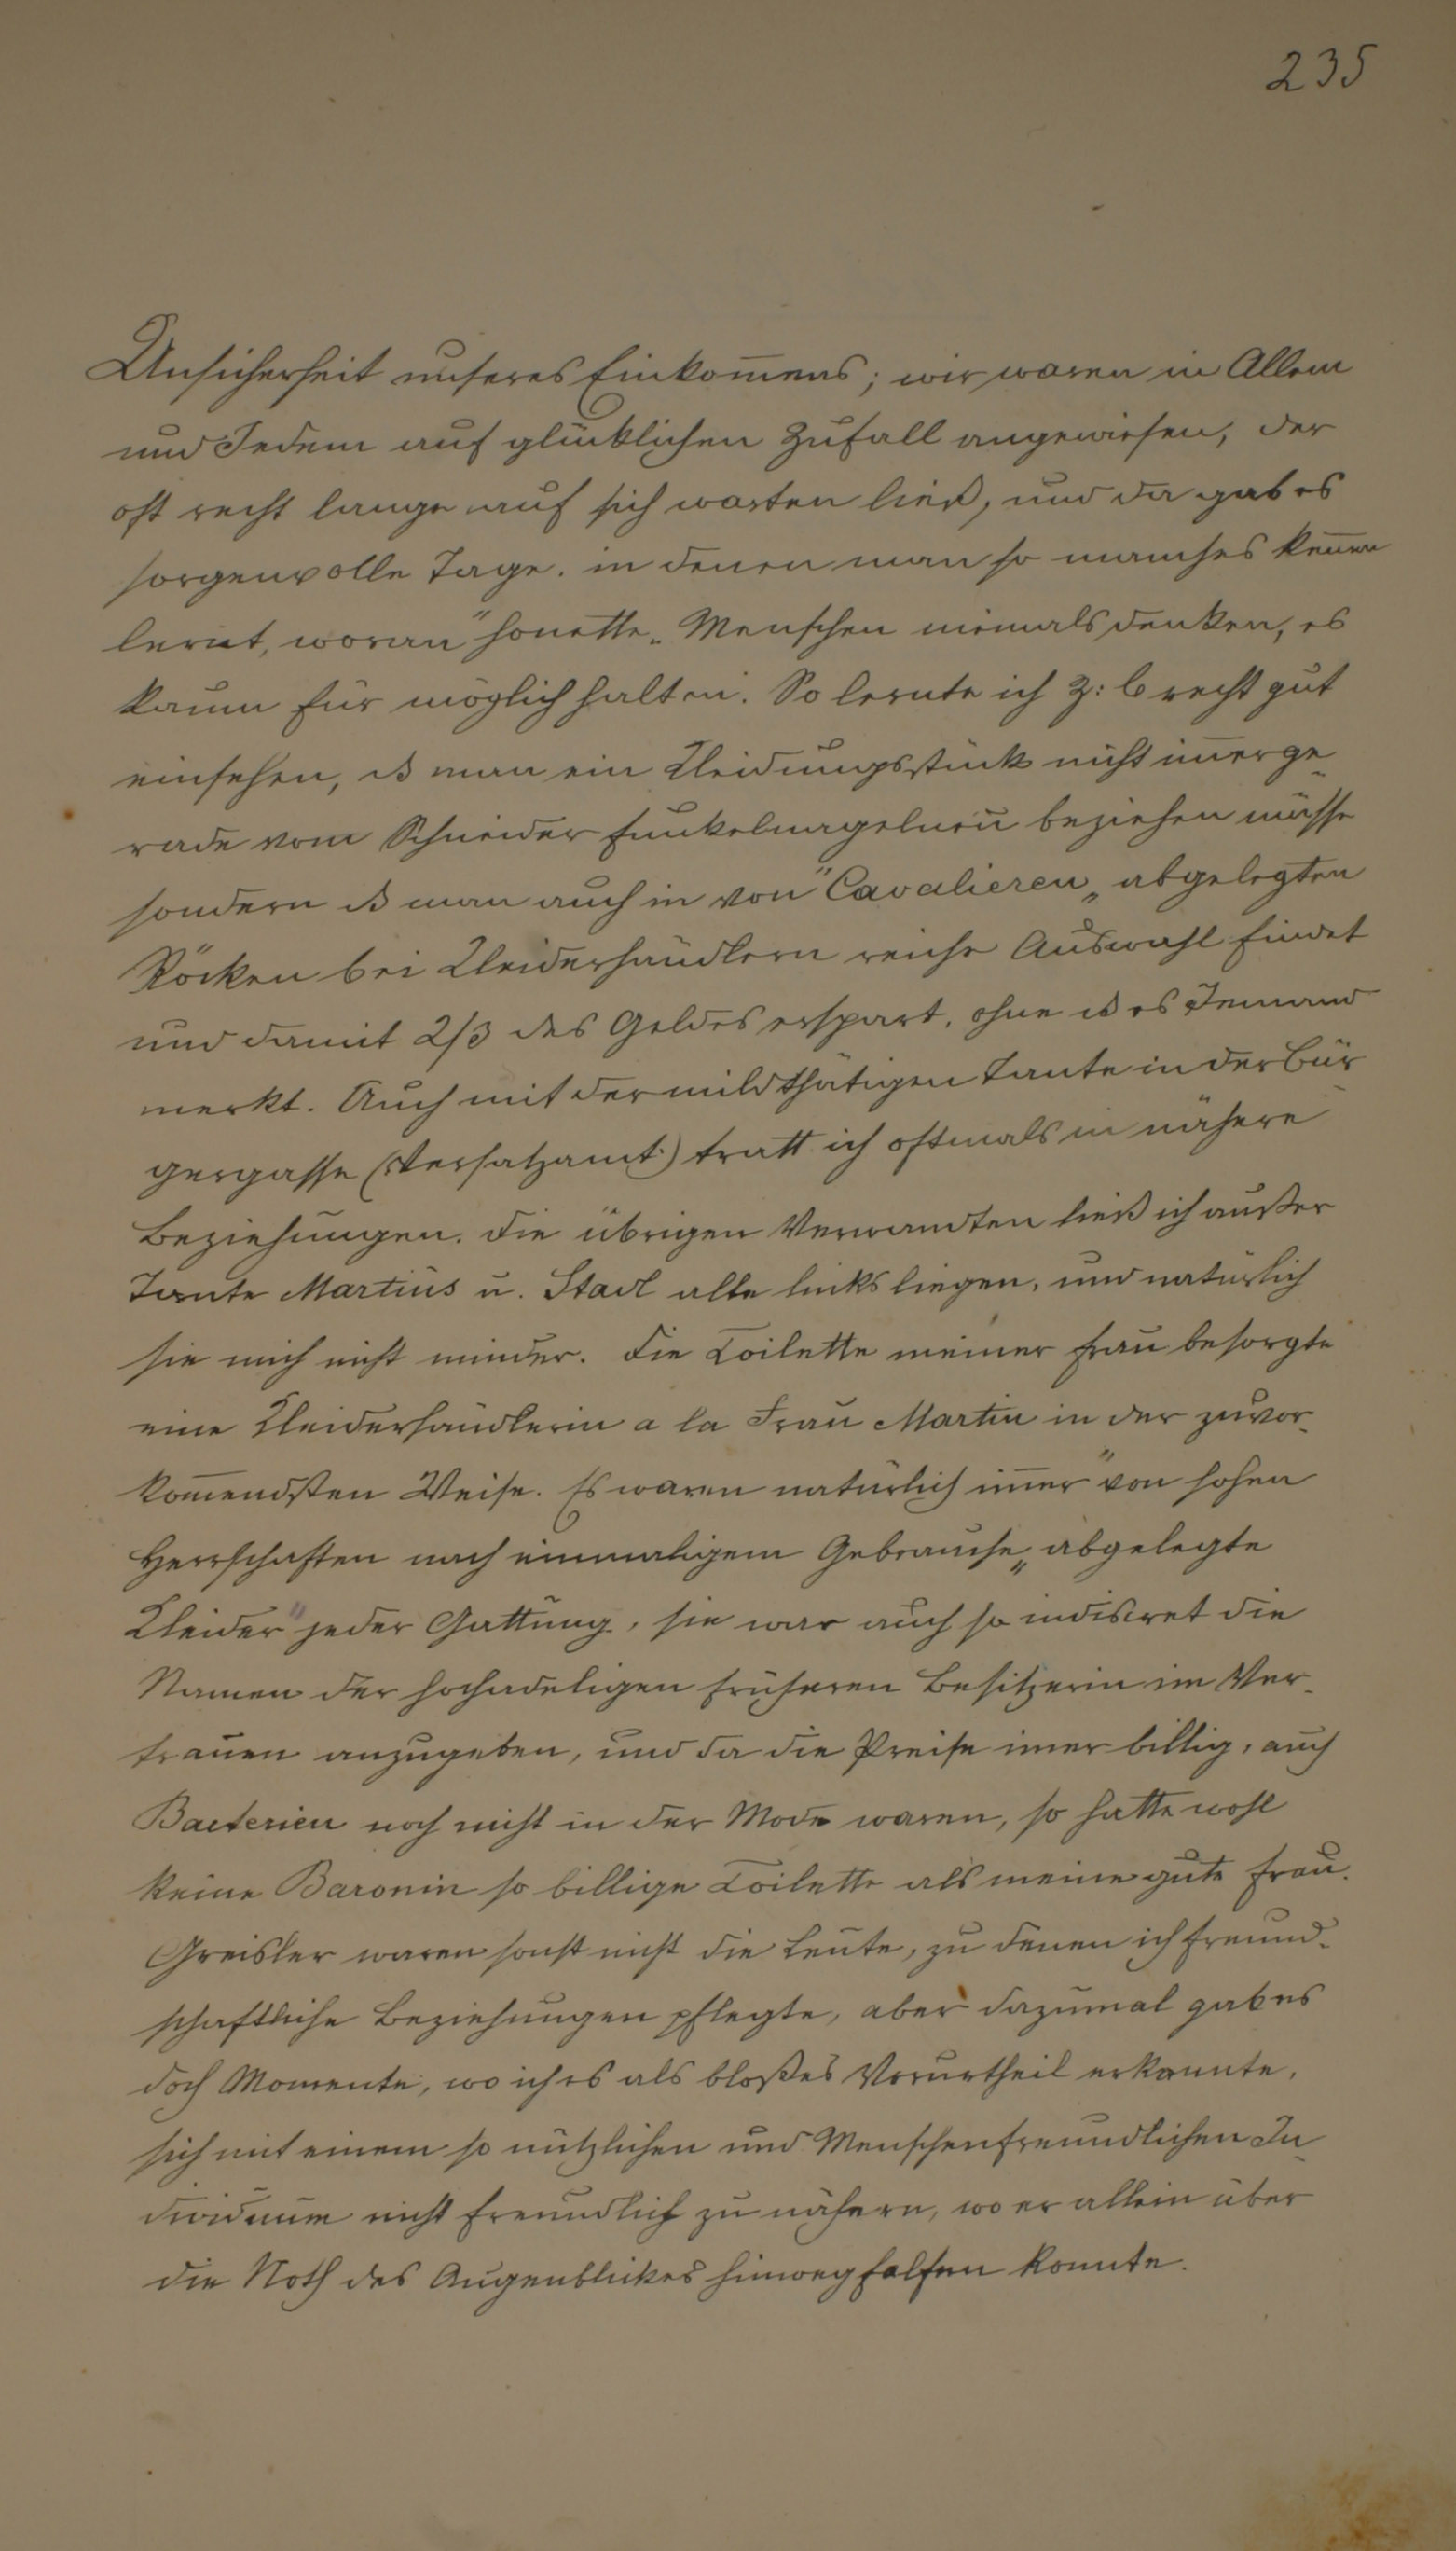 235
Unsicherheit unseres Einkom̅ens; wir waren in Allem
und Jedem auf glücklichen Zufall angewiesen, der
oft recht lange auf sich warten ließ, und da gab es
sorgenvolle Tage. in denen man so manches ken̅en
lernt, woran "honette„ Menschen niemals denken, es
kaum für möglich halten. So lernte ich z: b recht gut
einsehen, ß man ein Kleidungsstück nicht im̅er ge„
rade vom Schneider funkelnagelneu beziehen müsse
sondern ß man auch in von "Cavalieren„ abgelegten
Röcken bei Kleiderhändlern reiche Auswahl findet
und damit 2/3 des Geldes erspart, ohne ß es Jemand
merkt. Auch mit der mildthätigen Tante in der Bür
gergasse (Versatzamt) tratt ich oftmals in nähere
Beziehungen. Die übrigen Verwandten ließ ich außer
Tante Martius u. Stadl alle links liegen, und natürlich
sie mich nicht minder. Die Toilette meiner Frau besorgte
eine Kleiderhändlerin a la Frau Martin in der zuvor-
kom̅endsten Weise. Es waren natürlich im̅er "von hohen
Herrschaften nach einmaligem Gebrauche„ abgelegte
Kleider" jeder Gattung, sie war auch so indiscret die
Namen der hochadeligen früheren Besitzerin im Ver-
trauen anzugeben, und da die Preise im̅er billig, auch
Bacterien noch nicht in der Mode waren, so hatte wohl
keine Baronin so billige Toilette als meine gute Frau.
Greisler waren sonst nicht die Leute, zu denen ich freund-
schaftliche Beziehungen pflegte, aber dazumal gab es
doch Momente, wo ich es als bloßes Vorurtheil erkannte,
sich mit einem so nützlichen und Menschenfreundlichen In
dividuum nicht freundlich zu nähern, wo er allein über
die Noth des Augenblickes hinweghelfen konnte.